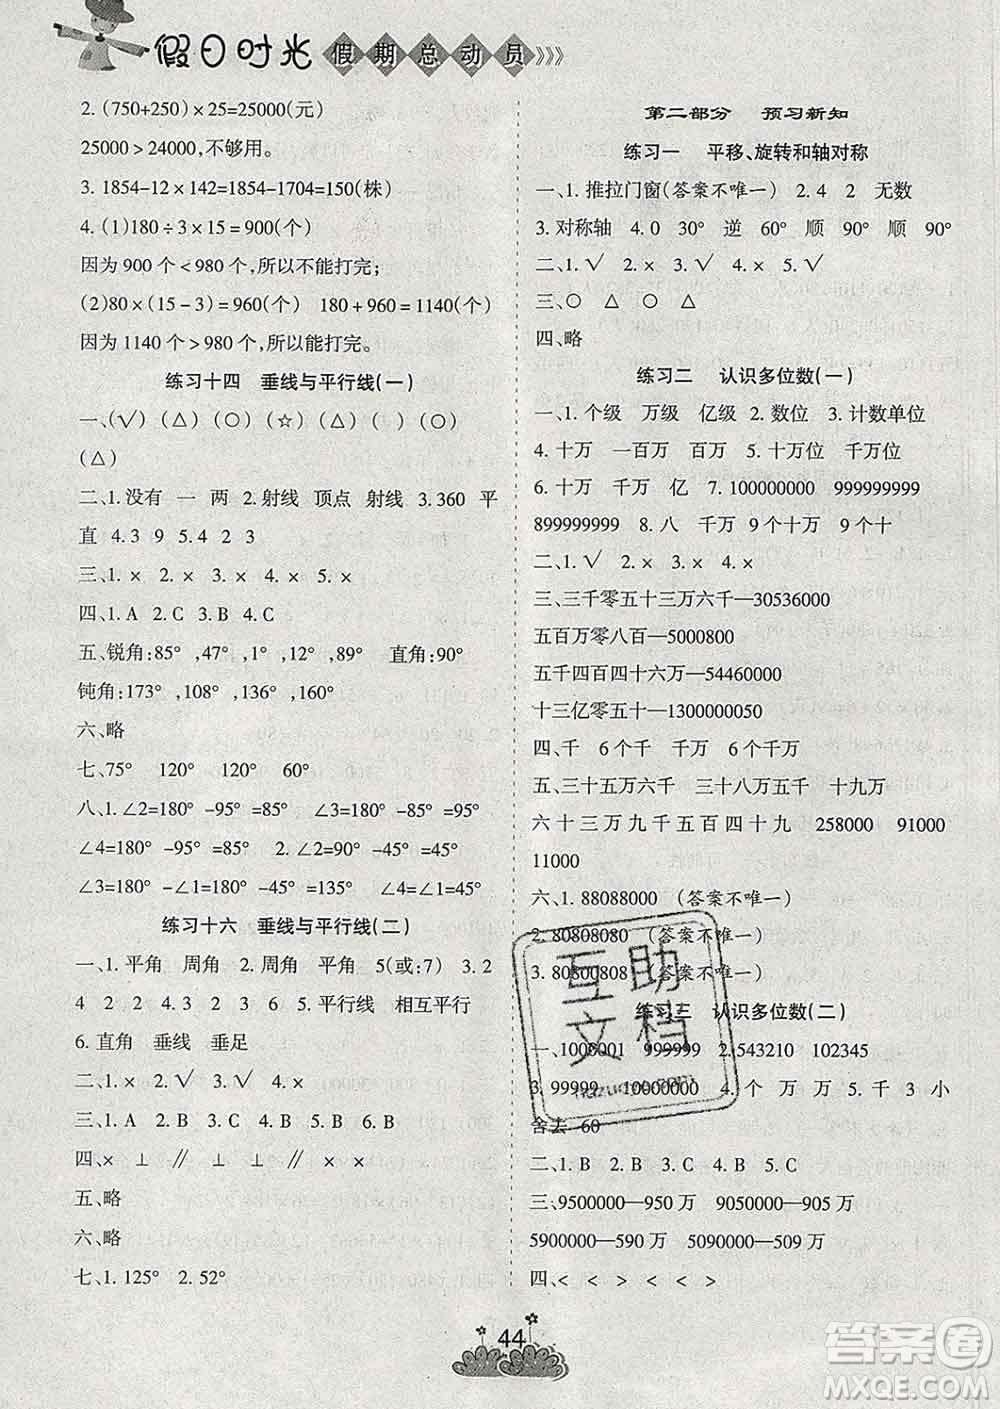 假日时光 假期总动员
2. (750+250)×25=25000(元)
25000＞24000,不够用。
3. 1854-12×142=1854-1704=150(株)
4. (1)180÷3×15=900(个)
因为 900 个＜980 个,所以不能打完;
(2)80×(15-3)=960(个) 180+960=1140(个)
因为 1140 个＞980 个,所以能打完。
练习十四 垂线与平行线(一)
一、(√) (△) (○) (☆) (△) ( ) (○)
(△)
二、1.没有 一 两 2.射线 顶点 射线 3.360 平
直 4.3 9 5.4 2 3
三、1.× 2.× 3.× 4.√ 5.×
四、1.A 2.C 3.B 4.C
五、锐角:85° ,47° ,1° ,12° ,89° 直角:90°
钝角:173° ,108° ,136° ,160°
六、略
七、75° 120° 120° 60°
八、1.∠2=180° -95° =85° ∠3=180° -85° =95°
∠4=180° -95° =85° 2.∠2=180° -135° =45°
∠3=180° -45° =135° ∠4=180° -135° =45°
练习十六 垂线与平行线(二)
一、1.平角 周角 2.周角 平角 5(或:7) 3.2
4 2 2 4.3 2 3 6 5.平行线 相互平行
6.直角 垂线 垂足
二、1.× 2.√ 3.√ 4.×
三、1.C 2.A 3.C 4.B 5.A 6.B
四、× ⊥ ∥ ⊥ ∥ × ×
五、略
六、略
七、1.125° 2.52°
第二部分 预习新知
练习一 平移、旋转和轴对称
一、1.推拉门窗(答案不唯一) 2.4 2 无数
3.对称轴 4.0 30° 逆 60° 顺 90° 顺 90°
二、1.√ 2.× 3.√ 4.× 5.√
三、○ △ ○ △
四、略
练习二 认识多位数(一)
一、1.个级 万级 亿级 2.数位 3.计数单位
4.十万 一百万 百万 5.十万位 千万位
6.十万 千万 亿 7.100000000 999999999
899999999 8.八 千万 9个十万 9个十
二、1.√ 2.× 3.× 4.× 5.√
三、三千零五十三万六千—30536000
五百万零八百—5000800
五千四百四十六万—54460000
十三亿零五十—1300000050
四、千 6个千 万 6个千万
五、三十五万六千 七十二万 十九万
六十三万九千五百四十九 258000 91000
11000
六、1. 88088000 (答案不唯一)
2. 80808080 (答案不唯一)
3. 80800808 (答案不唯一)
练习三 认识多位数(二)
一、1000001 999999 2.543210 102345
3. 99999 10000000 4.个 万 万 5.千 3 小
舍去 60
二、1.B 2.B 3.C 4.B 5.B
三、9500000—950万 9050000—905万
5900000—590万 5090000—509万
四、＜ ＜ ＞ ＜ ＜ ＞
44
互助
文档
答案圈
MXQE.COM